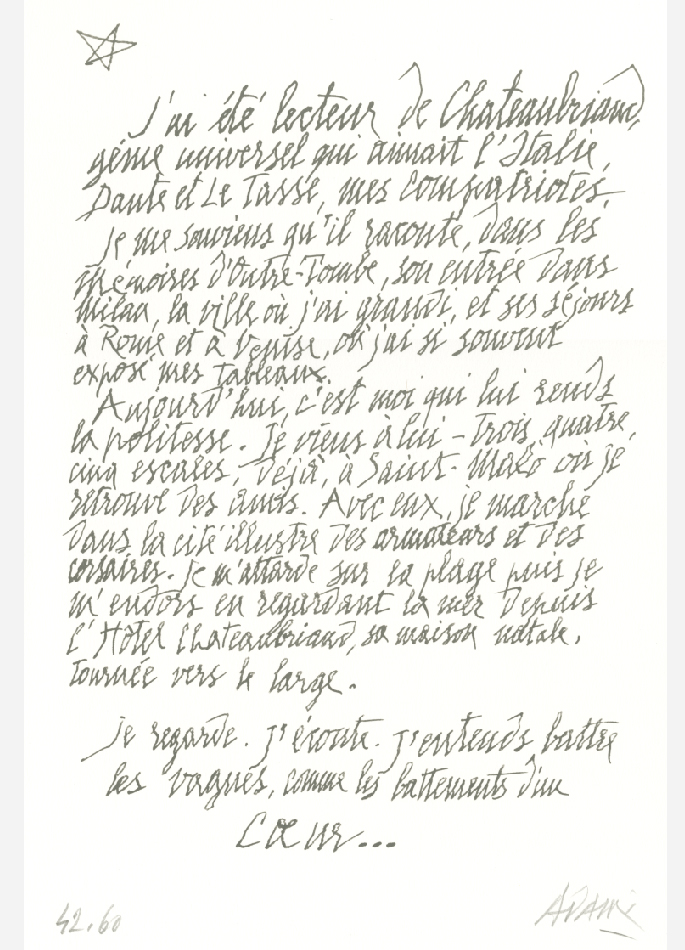 J'ai été lecteur de Chateaubriand,
génie universel qui aimait l'Italie,
Dante et Le Tasse, mes compatriotes.
Je me souviens qu'il raconte, dans les
mémoires d'Outre-Tombe, son entrée dans
Milan, la ville où j'ai grandi, et ses séjours
à Rome et à Venise, où j'ai si souvent
exposé mes tableaux.
Aujourd'hui, c'est moi qui lui rends
la politesse. Je viens à lui - trois, quatre,
cinq escales, déjà, à Saint-Malo où je
retrouve des amis. Avec eux, je marche
dans la cité illustre des armateurs et des
corsaires. Je m'attarde sur la plage puis je
m'endors en regardant la mer depuis
l'Hôtel Chateaubriand, sa maison natale.
Tournée vers le large.
Je regarde. J'écoute. J'entends battre
les vagues, comme les battements d'un
Cœur...
42.60
ADAMI